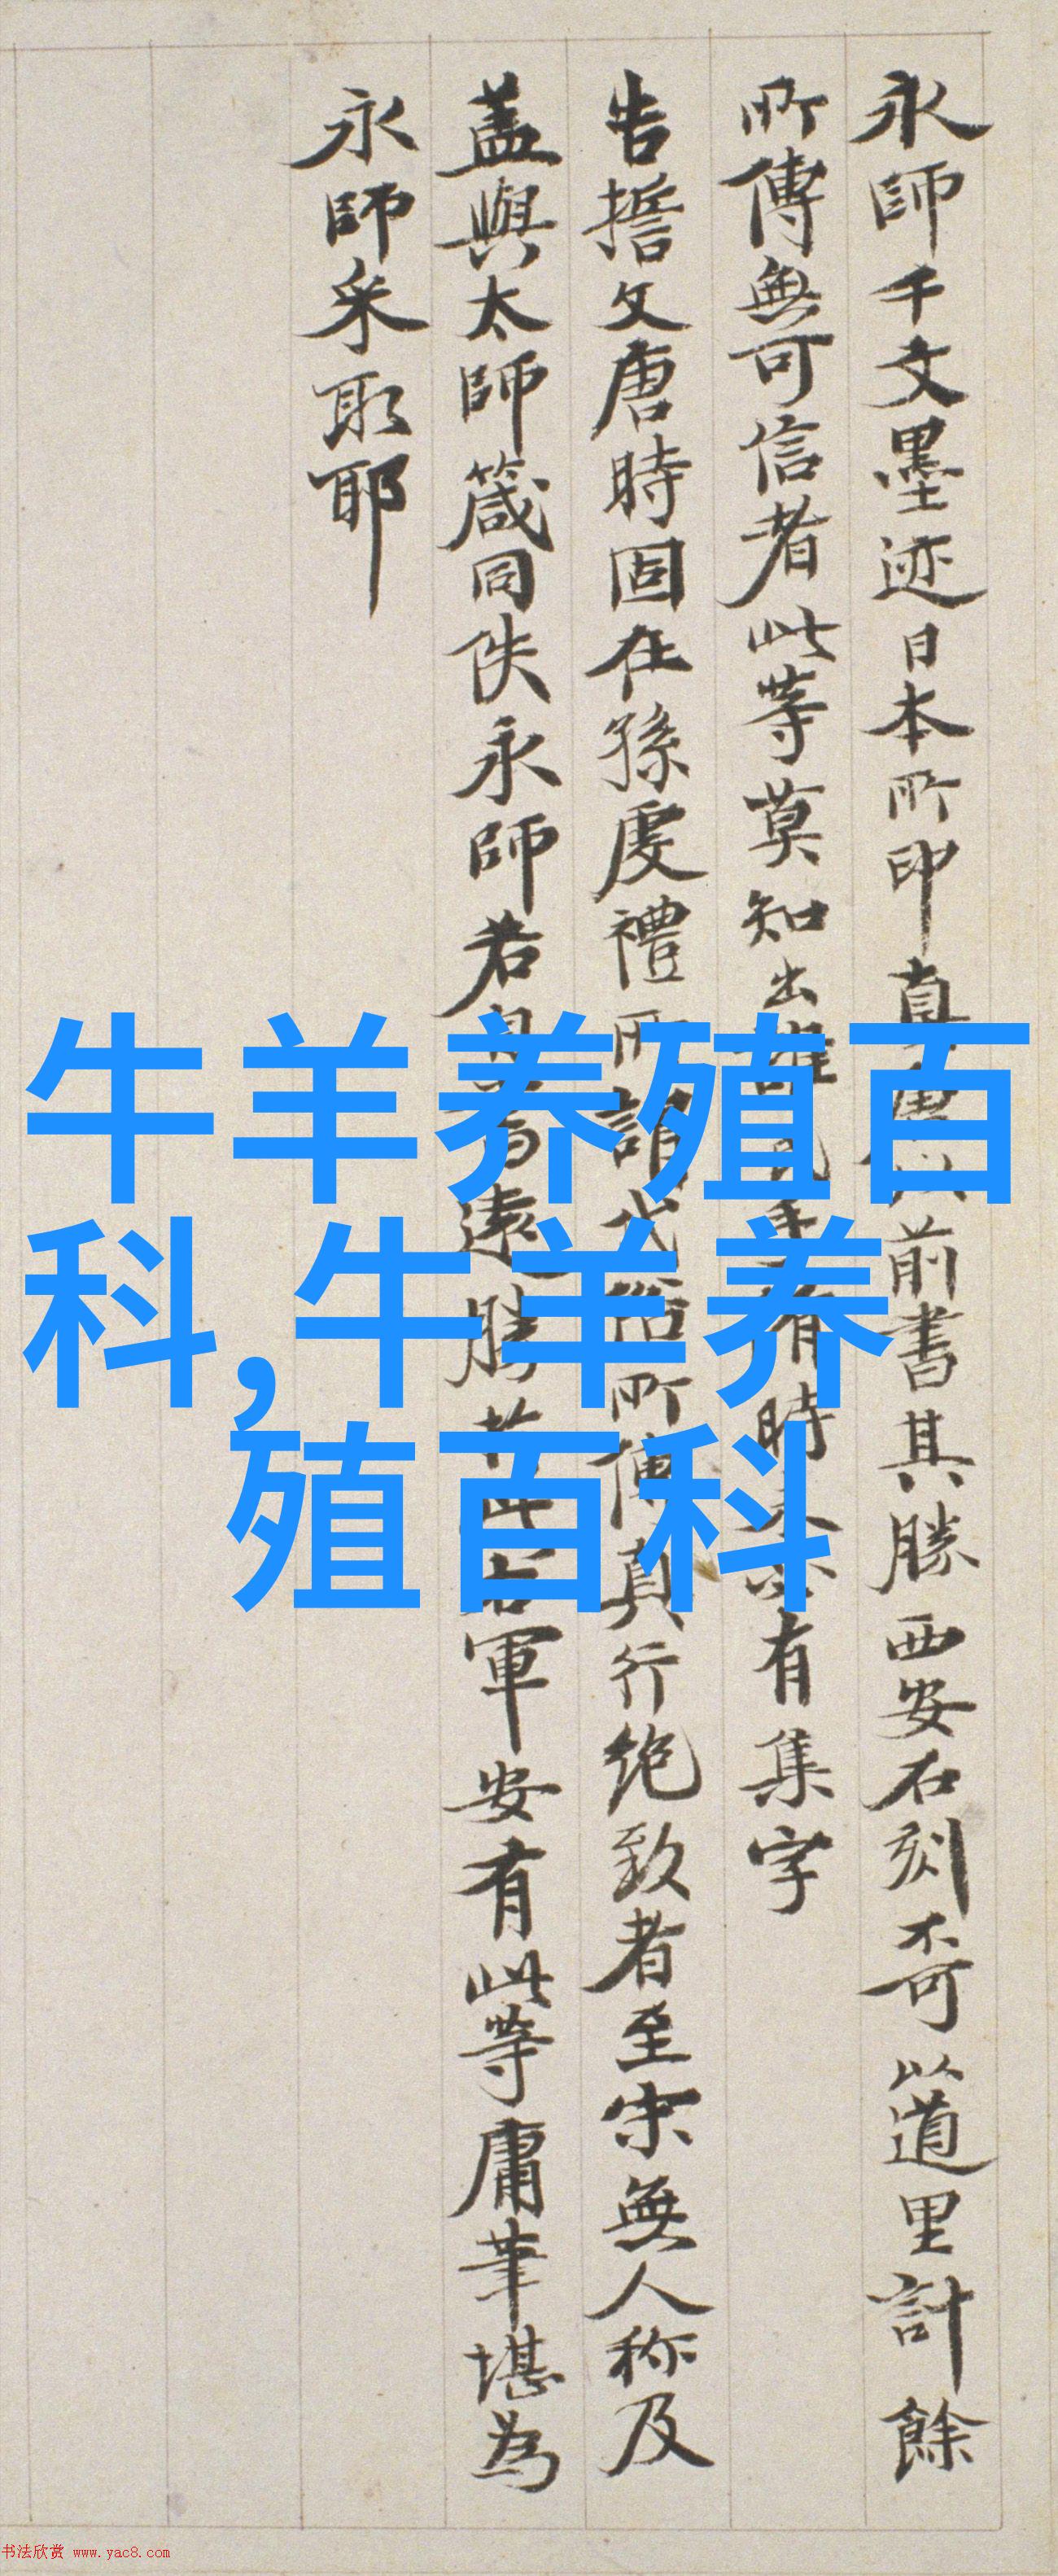 永師千文墨迹日本所印真唐以前書其勝西安石刻奇以道里計餘
所傳無可信者此等莫知出誰氏手有時又有集字
告誓文唐時固在孫虔禮所謂代俗所傳真行绝致者至宋無人称及
盖與太師箴同佚永師若遠勝右軍安有此等庸筆堪為
永師采取耶
牛羊养殖百
科,牛羊养
殖百科
书法欣赏 www.yac8.com